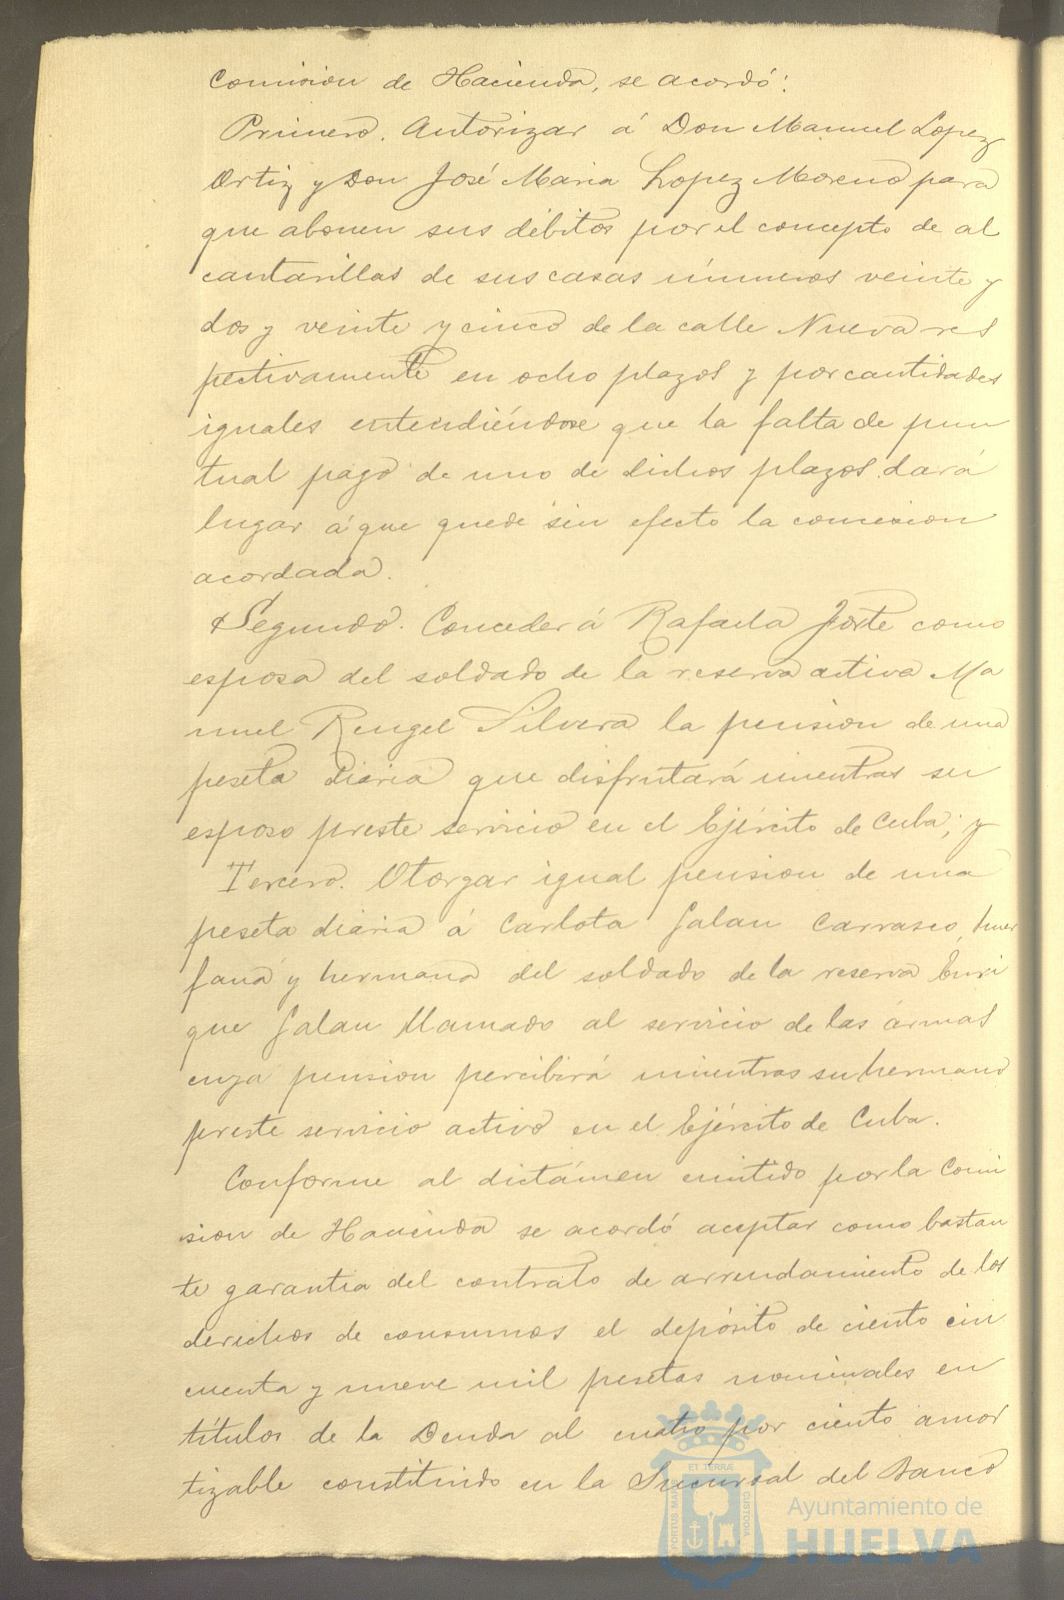 Comision de Hacienda, se acordó:
Primero. Autorizar á Don Manuel Lopez
Ortiz y Don José Maria Lopez Moreno para
que abonen sus débitos por el concepto de al
cantarillas de sus casas números veinte y
dos y veinte y cinco de la calle Nueva res
pectivamente en ocho plazos y por cantidades
iguales entendiéndose que la falta de pun
tual pago de uno de dichos plazos dará
lugar á que quede sin efecto la concesion
acordada.
Segundo. Conceder á Rafaela Forte como
esposa del soldado de la reserva activa Ma
nuel Rengel Silvera la pension de una
peseta diaria que disfrutará mientras su
esposo preste servicio en el Ejército de Cuba; y
Tercero. Otorgar igual pension de una
peseta diaria á Carlota Galan Carrasco, huer
fana y hermana del soldado de la reserva Enri
que Galan llamado al servicio de las ármas
cuya pension percibirá mientras su hermano
preste servicio activo en el Ejército de Cuba.
Conforme al dictámen emitido por la Comi
sion de Hacienda se acordó aceptar como bastan
te garantia del contrato de arrendamiento de los
derechos de consumos el depósito de ciento cin
cuenta y nueve mil pesetas nominales en
títulos de la Deuda al cuatro por ciento amor
tizable constituido en la Sucursal del Banco
PORTUS MARIS ET TERRÆ CUSTODIA
Ayuntamiento de
HUELVA